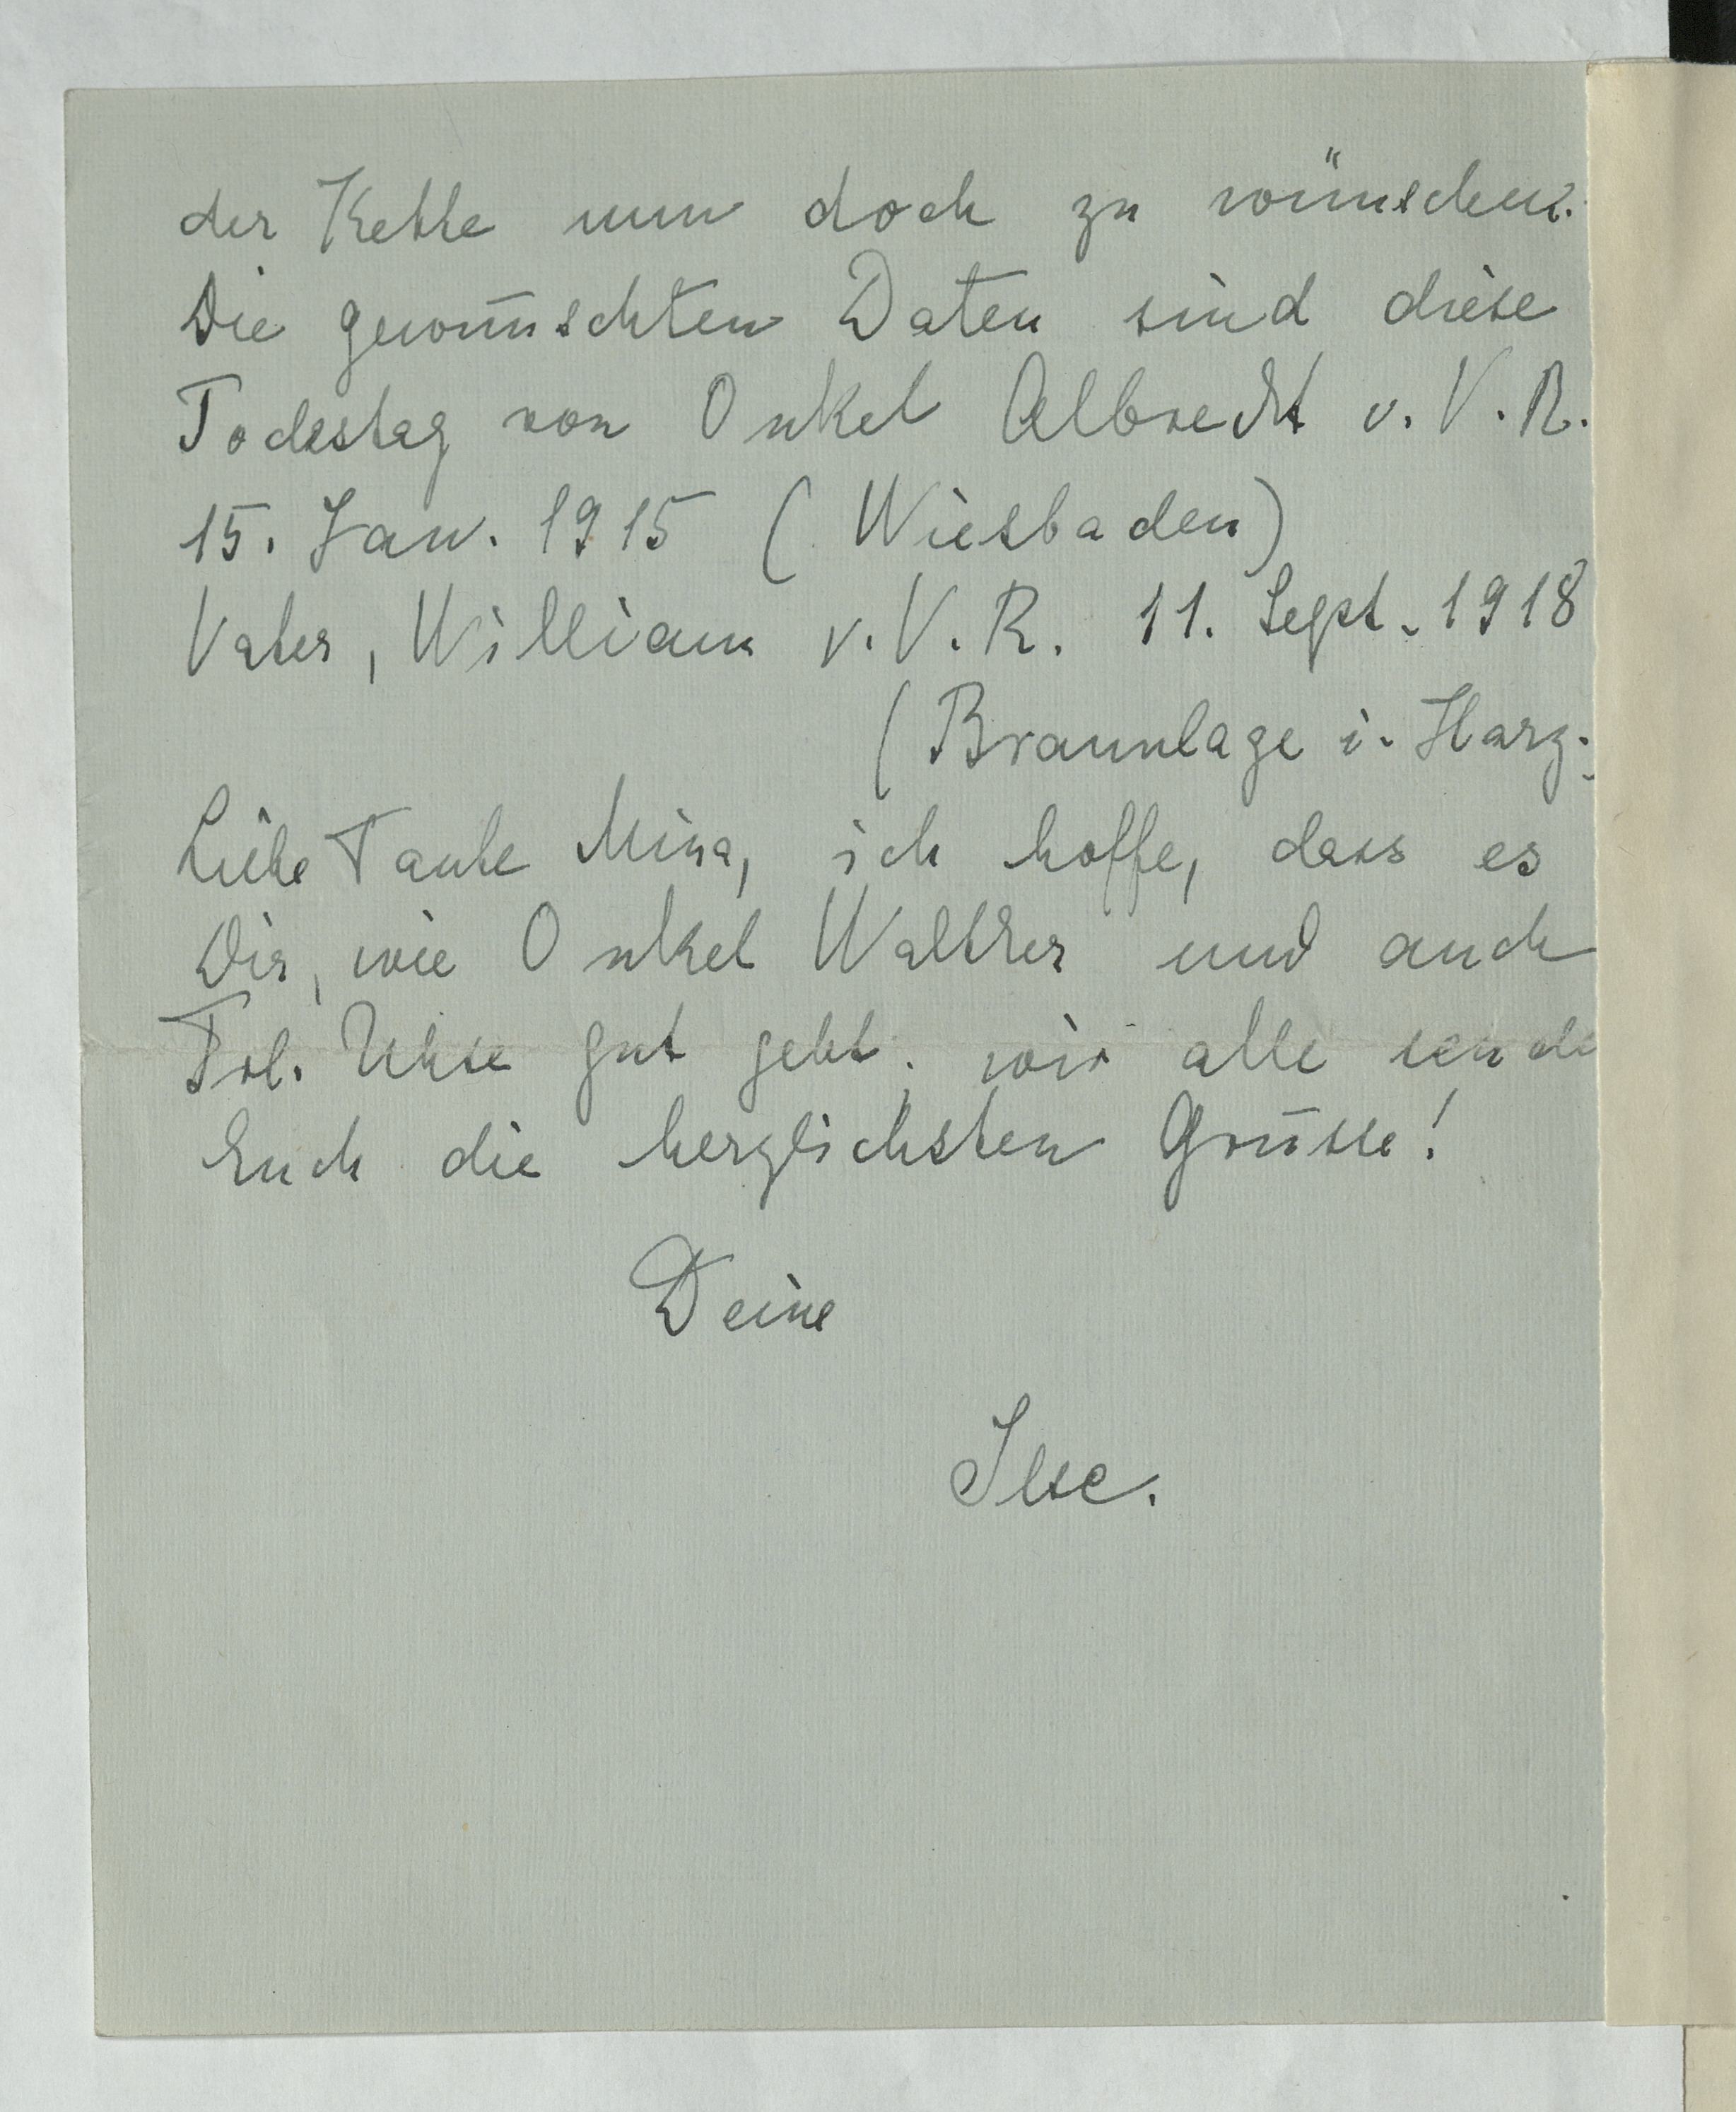 der Kette nun doch zu wünschen.
Die gewünschten Daten sind diese
Todestag von Onkel Albrecht v. V. R.
15. Jan. 1915 (Wiesbaden)
Vater, William v. V. R. 11. Sept. 1918
(Braunlage i. Harz.
Liebe Tante Mina, ich hoffe, dass es
Dir, wie Onkel Walther und auch
Frl. Uhse gut geht; wir alle sende
Euch die herzlichsten Grüsse!
Deine
Ilse.